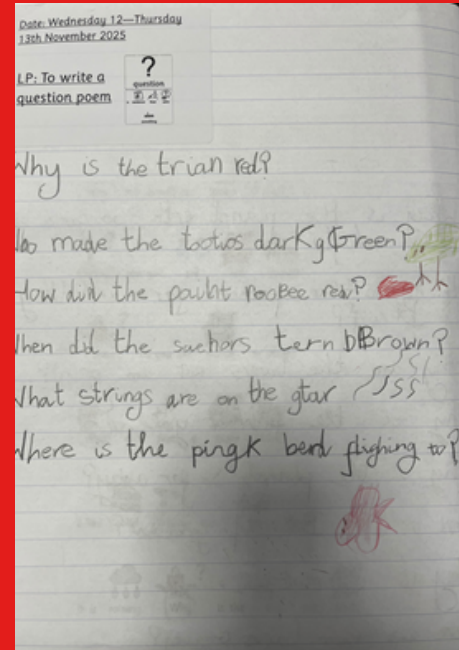 Date: Wednesday 12—Thursday
13th November 2025
LP: To write a
question poem
?
question
Why is the trian red?
made the tootios dark gGreen?
How did the paiht rooBee red?
When did the suehors tern bBrown?
What strings are on the gtar
Where is the pingk berd flighing to?